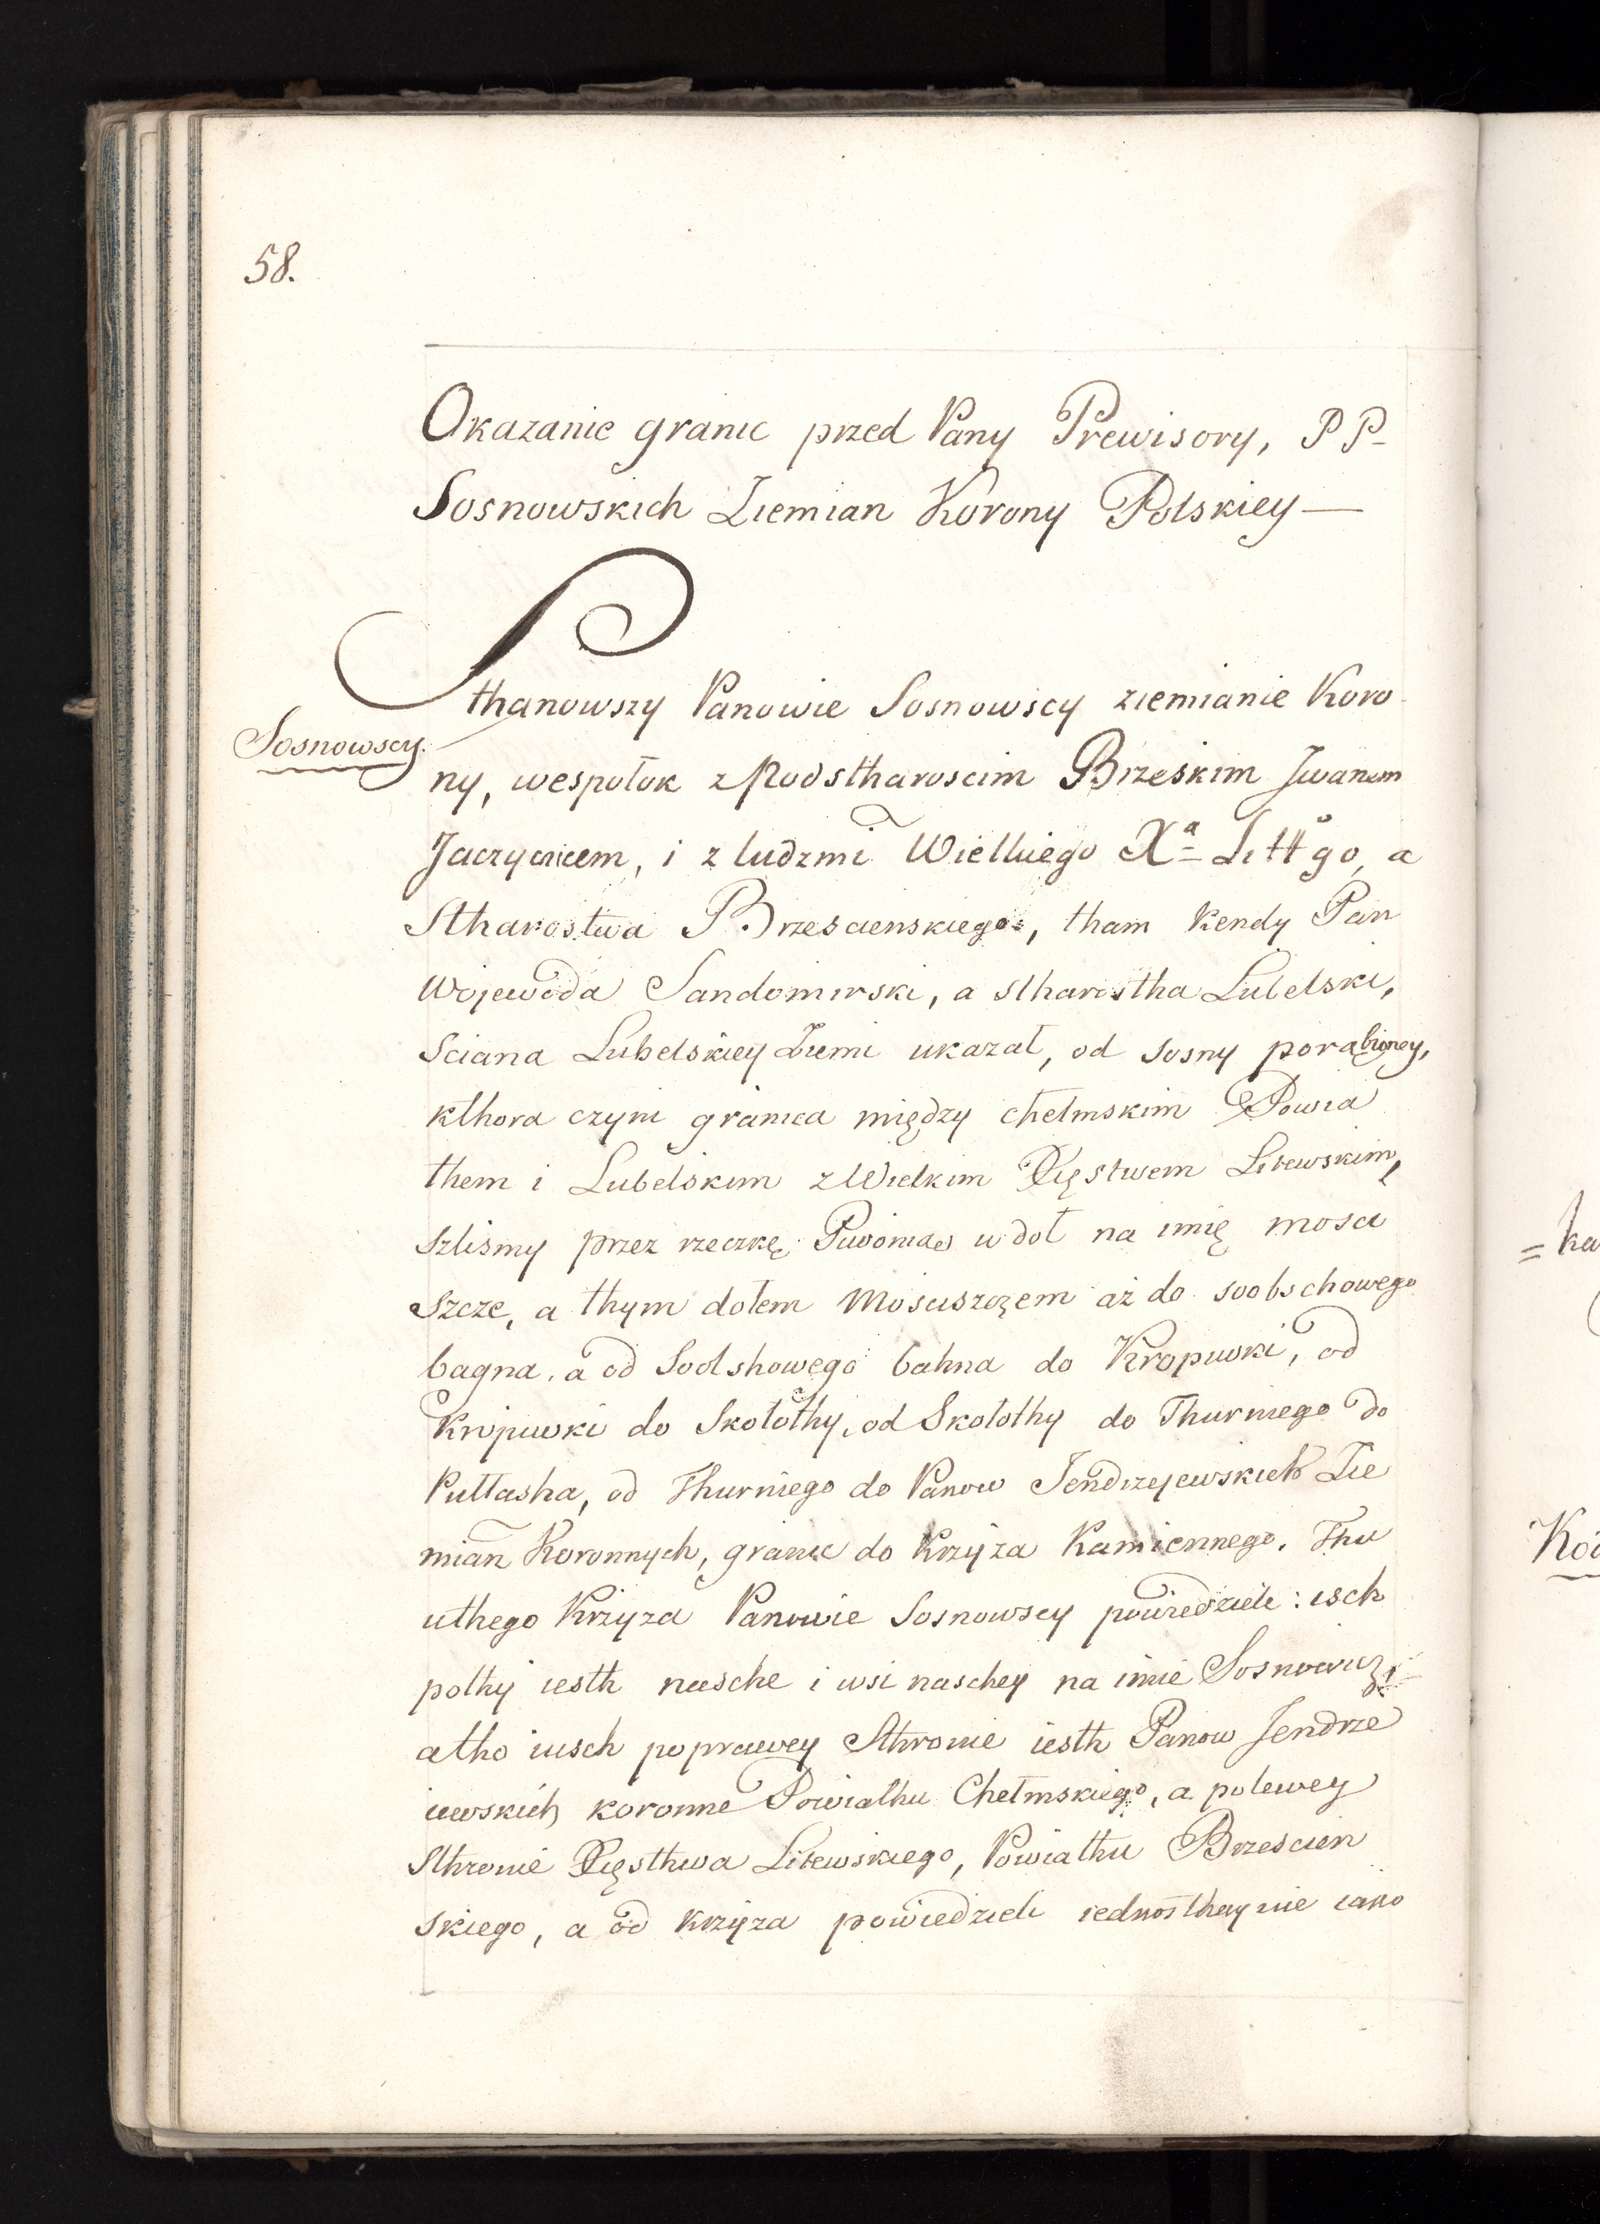 58.
Okazanie granic przed Pany Prewisory, PP
Sosnowskich Ziemian Korony Polskiey —
Sthanowszy Panowie Sosnowscy ziemianie Koro
Sosnowscy.
ny, wespołok z Podstharoscim Brzeskim Jwanem
Jaczyczicem, i z ludzmi Wielkiego Xa Litt go, a
Stharostwa Brzescienskiego, tham kendy Pan
Wojewoda Sandomirski, a stharostha Lubelski,
Sciana Lubelskiey Ziemi ukazał, od sosny porąbioney,
kthora czyni granica między chełmskim Powia
them i Lubelskim z Wielkim Xięstwem Litewskim,
szlismy przez rzeczkę w doł na imię mosci
szcze, a thym dołem Mosciszczem aż do soobschowego
bagna, a od Soolshowego bahna do Kropiwki, od
Kropiwki do Skołothy, od Skołothy do Thurniego do
Pultasha, od Thurniego do Panow Jendrzejewskich Zie
mian Koronnych, granic do Krzyza Kamiennego. Thu
uthego Krzyza Panowie Sosnowscy powiedzieli: isch
pothy iesth nasche i wsi naschey na imie
atho iusch poprawey Sthronie iesth Panow Jendrze
iewskich koronne Powiathu Chełmskiego, a polewey
Sthronie Xięsthwa Litewskiego, Powiathu Brzescien
skiego, a od krzyza powiedzieli iednosthaynie iako
= ka